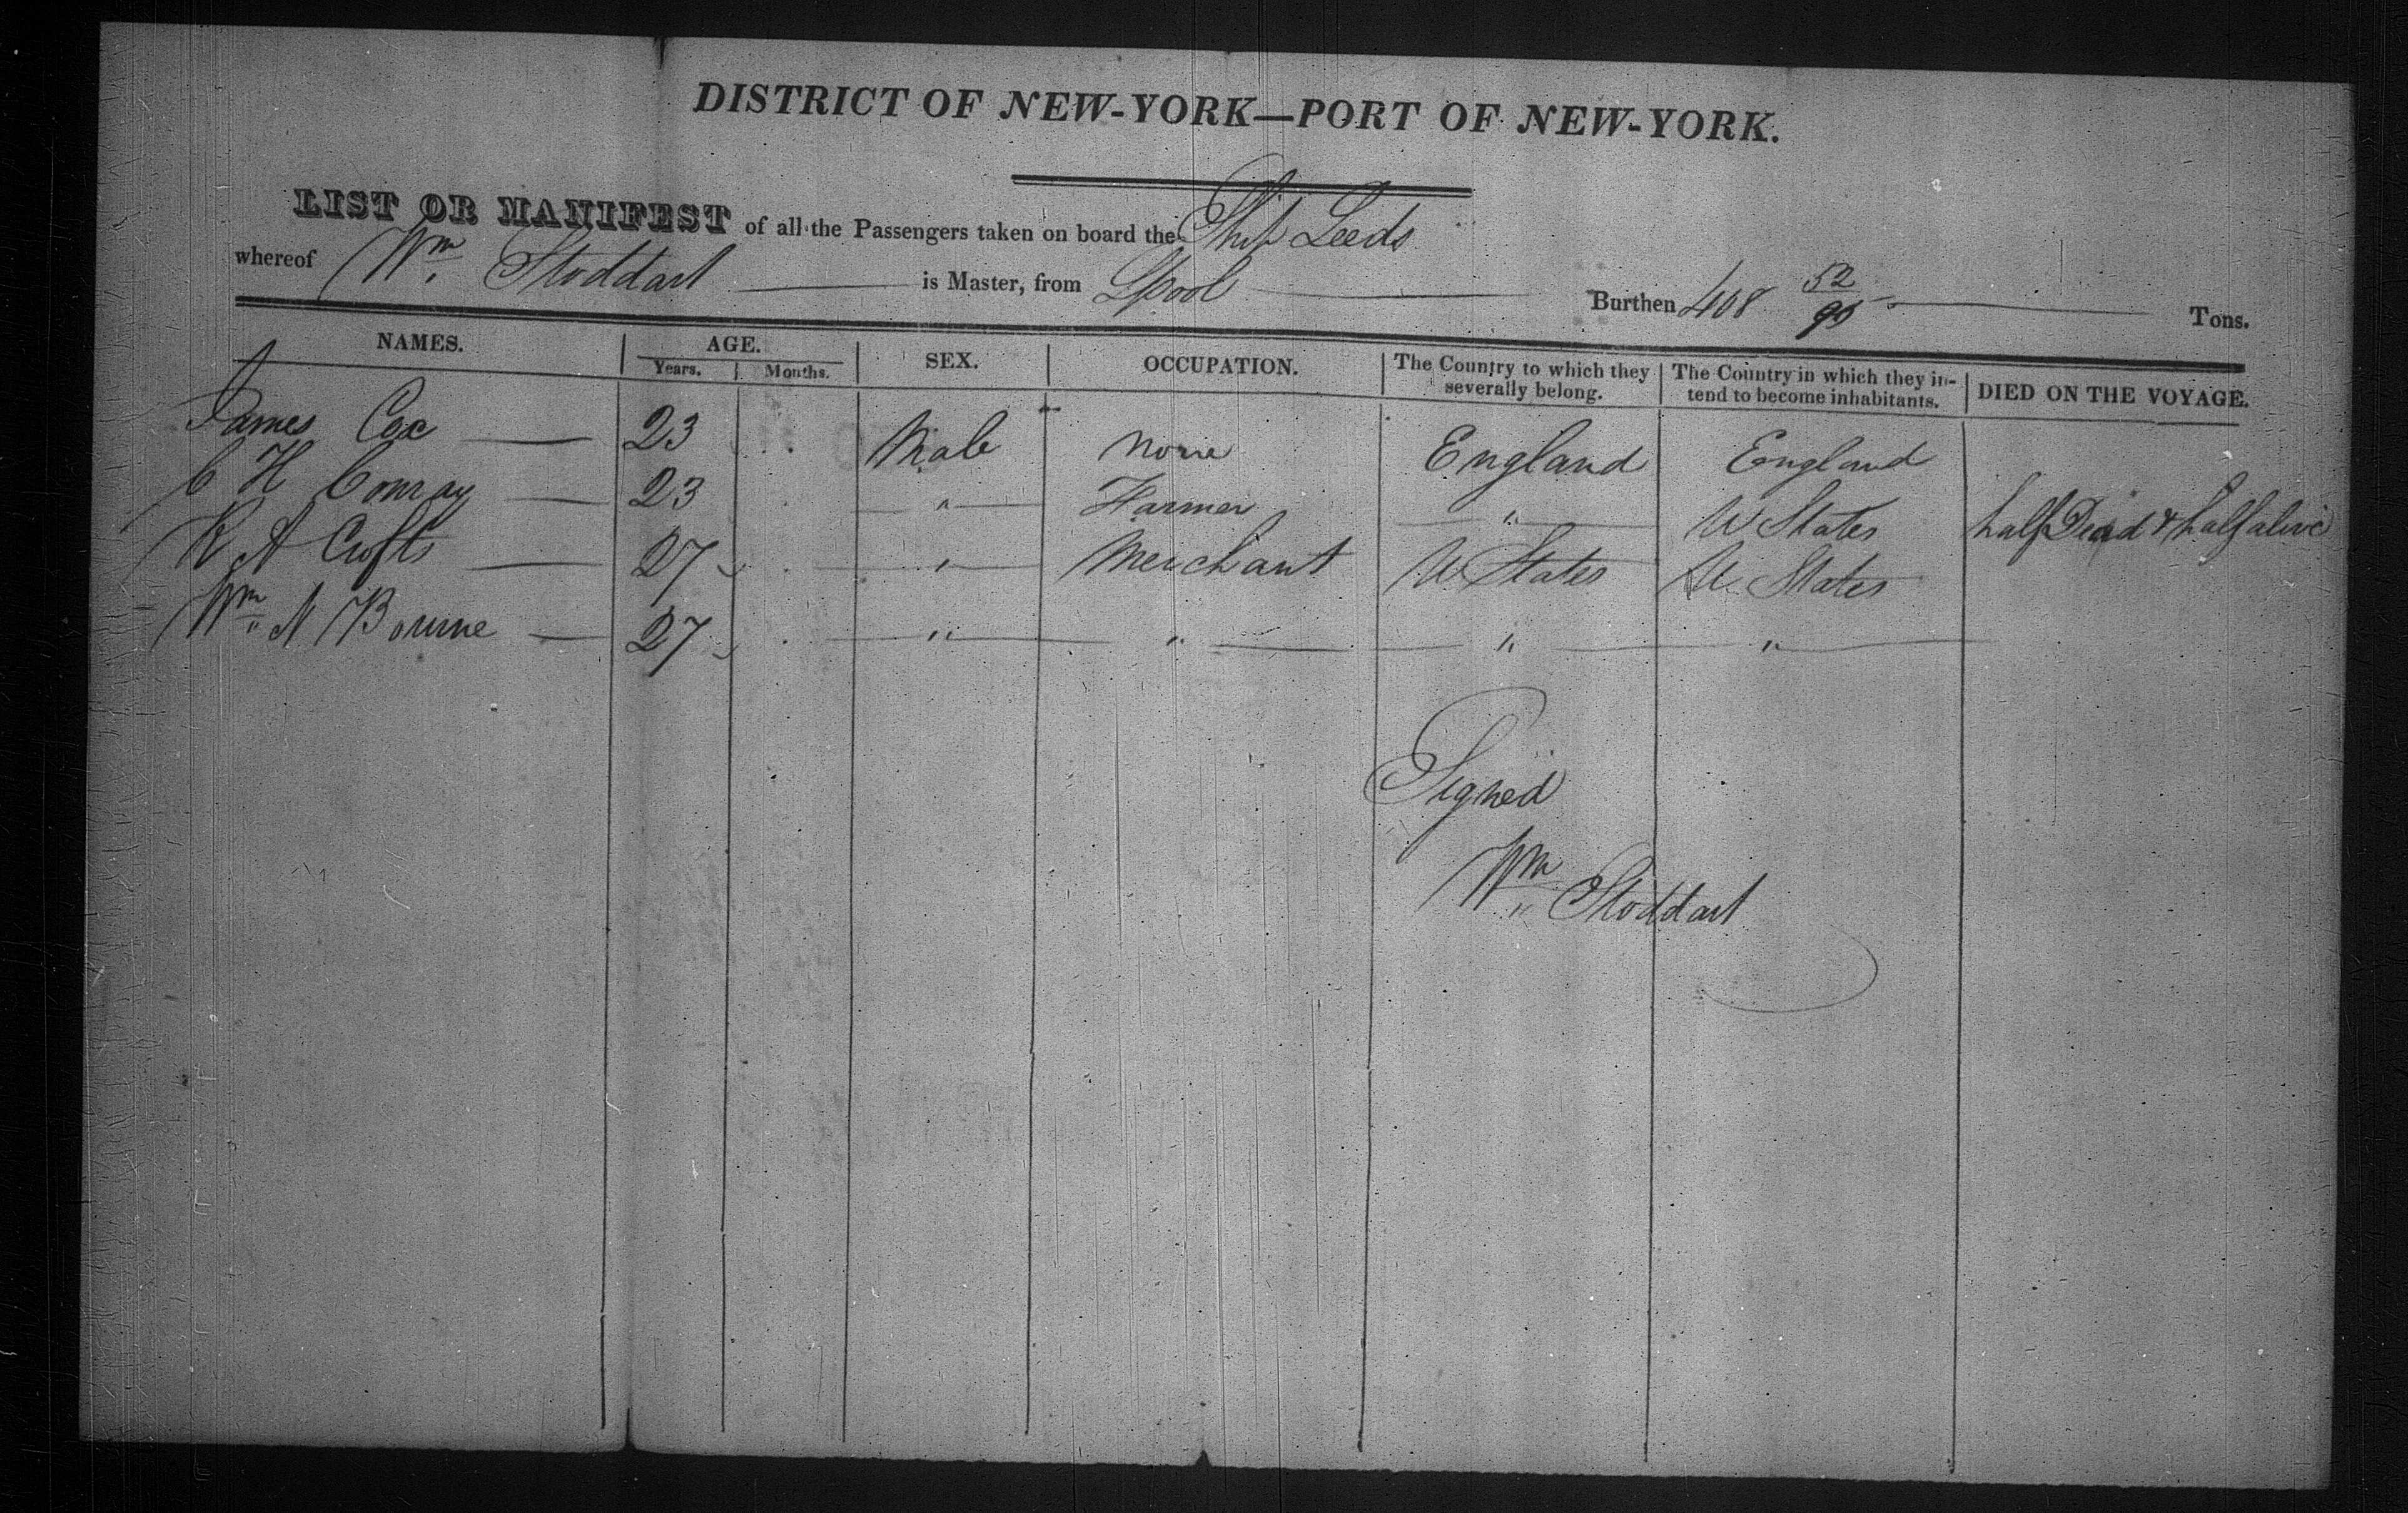 DISTRICT OF NEW-YORK—PORT OF NEW-YORK.
LIST OR MANIFEST of all the Passengers taken on board the Ship Leeds
whereof Wm. Stoddart is Master, from Lpool Burthen 408 52/95 Tons.
NAMES. AGE. SEX. OCCUPATION. The Country to which they severally belong. The Country in which they in-tend to become inhabitants. DIED ON THE VOYAGE.
Years. Months.
James Cox — 23 Male None England England
C H Conray — 23 " Farmer " U States half Dead & half alive
R A Crofts — 27 " Merchant U States U States
Wm N Bourne — 27 " " " "
Signed
Wm Stoddart